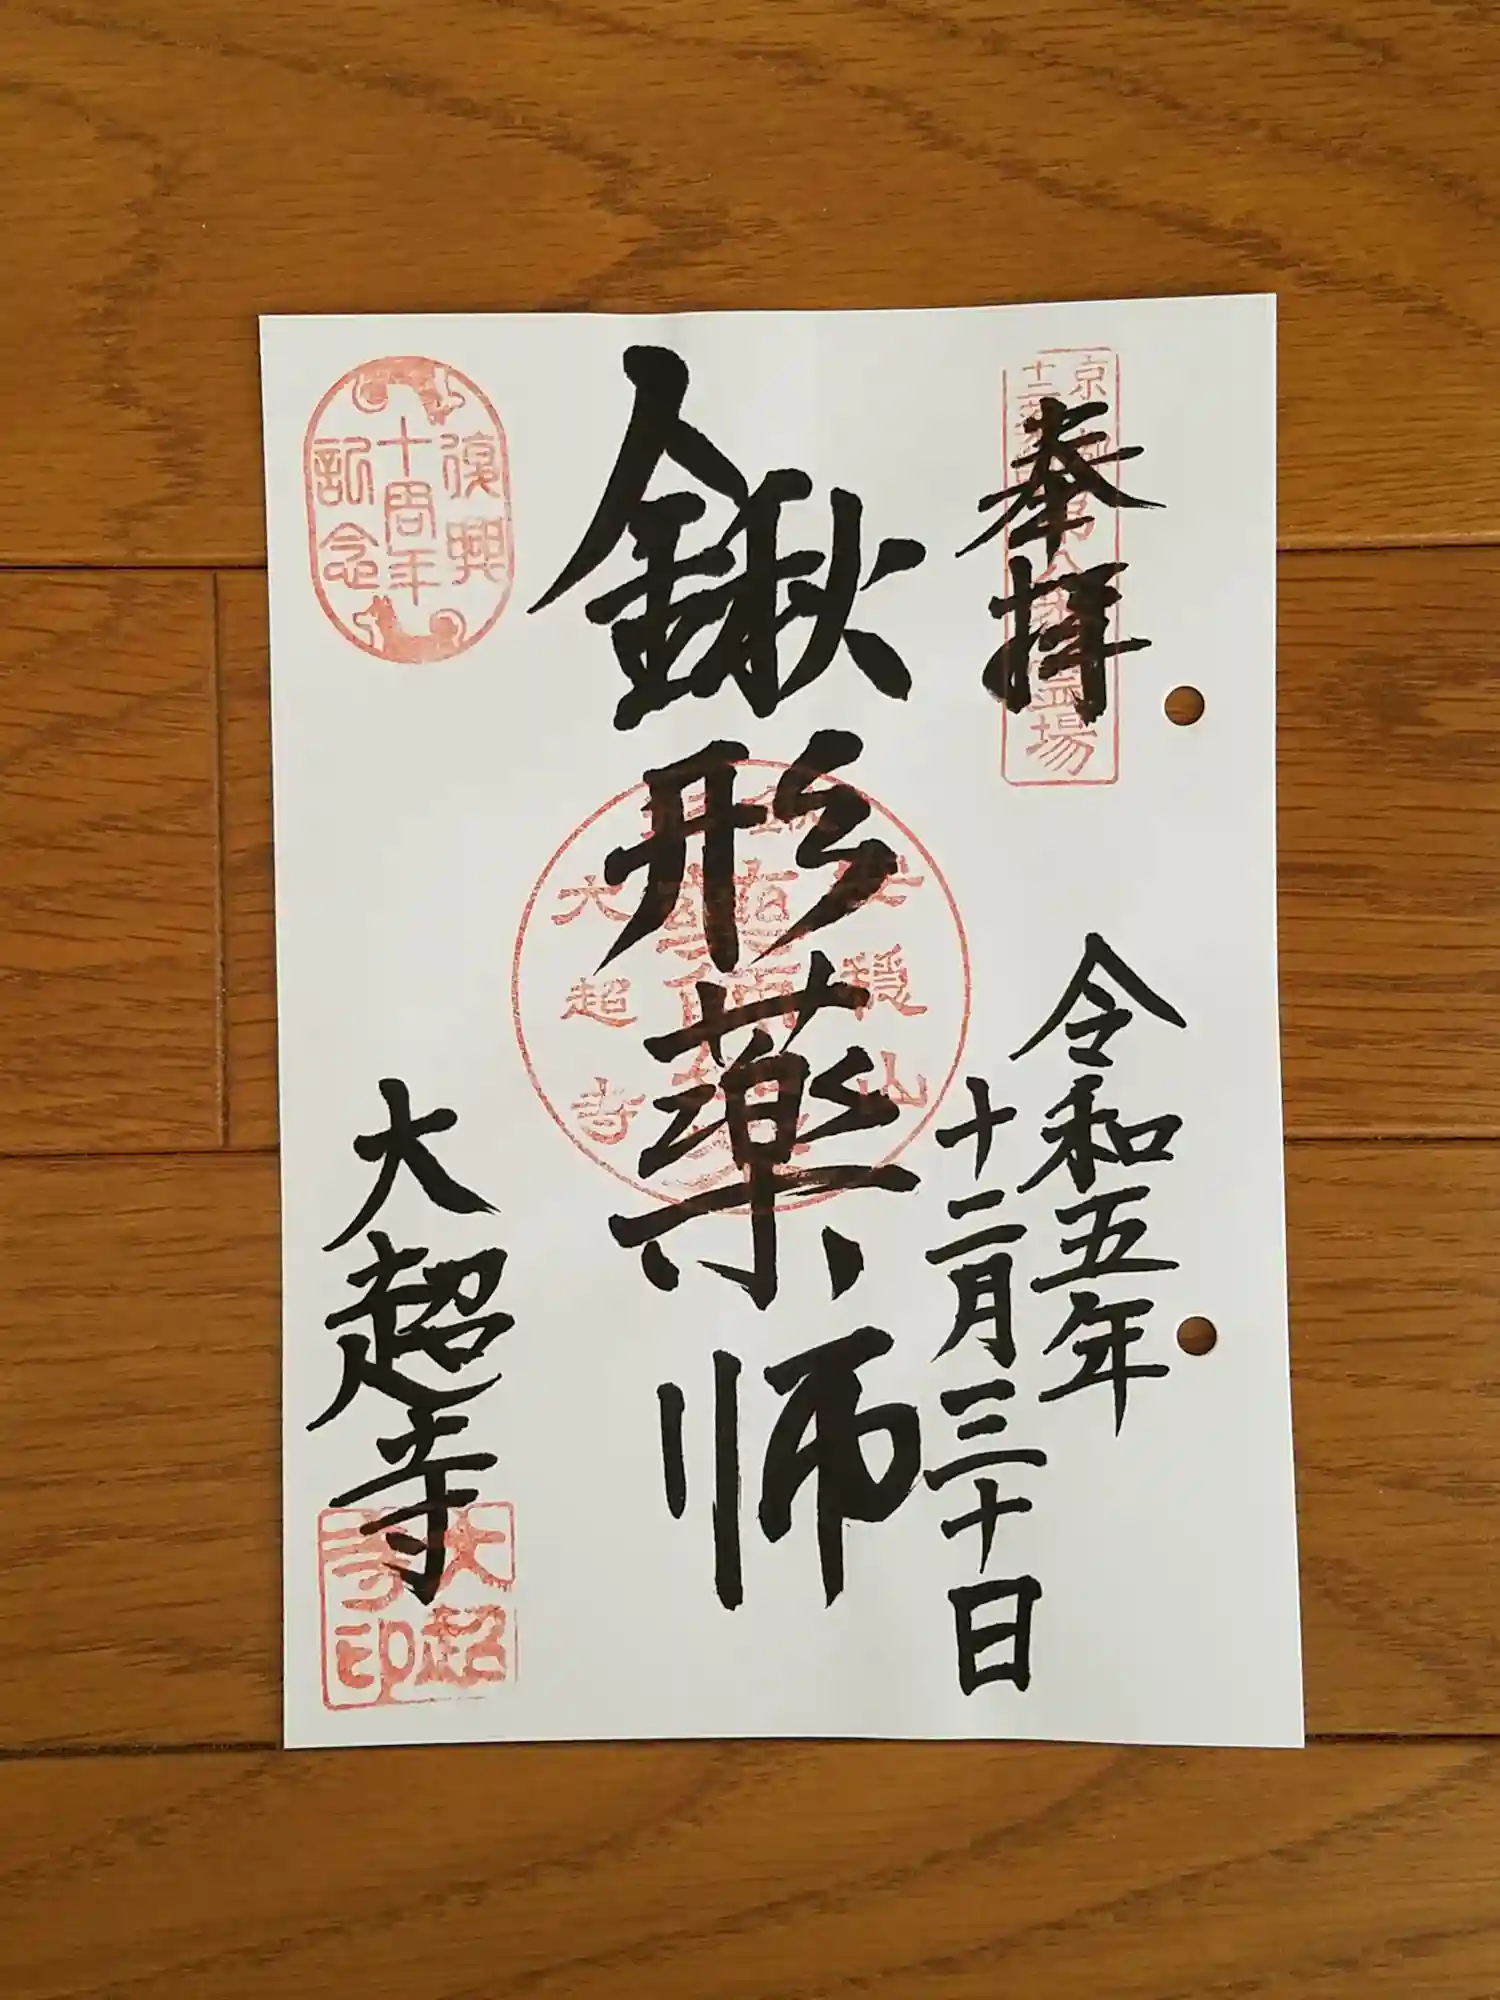 奉拝
令和五年
十二月三十日
鍬形薬師
大超寺
復興
十周年
記念
安穏山
大超寺
大超
寺印